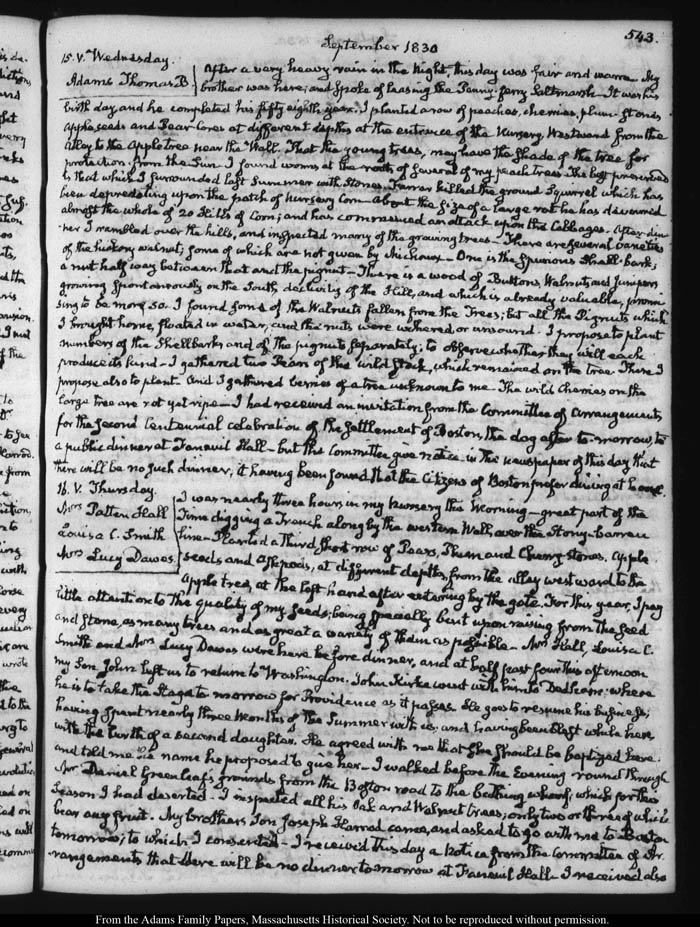 543.
September 1830
15. V. Wednesday.
Adams Thomas B
After a very heavy rain in the Night, this day was fair and warm. My
brother was here; and spoke of leasing the Penny-ferry Saltmarsh. It was his
birth day, and he completed his fifty eighth year. I planted a row of peaches, cherries, plum-stones,
Apple seeds and Pear Cores at different depths at the entrance of the Nursery, Westward from the
Alley to the Apple tree near the Wall. That the young trees, may have the shade of the tree for
protection from the Sun. I found worms at the roots of several of my peach trees. The best preserved
is that which I surrounded last Summer with Stones. Farrar killed the ground Squirrel which has
been depredating upon the patch of Nursery Corn. About the size of a large rat he has devoured
almost the whole of 20 Hills of Corn; and has commenced an attack upon the Cabbages. After din-
ner I rambled over the hills, and inspected many of the growing trees. There are several varieties
of the hickory walnut; some of which are not given by Michaux. One is the spurious Shell-bark;
a nut half way between that and the pignut. There is a wood of Buttons, Walnuts and Junipers
growing spontaneously on the South declivity of the Hill, and which is already valuable, promi
sing to be more so. I found some of the Walnuts fallen from the Trees; but all the Pignuts which
I brought home, floated in water, and the nuts were withered or unsound. I propose to plant
numbers of the Shellbarks and of the pignuts separately; to observe whether they will each
produce its kind. I gathered two Pears of the wild stock, which remained on the tree. These I
propose also to plant. And I gathered berries of a tree unknown to me. The wild Cherries on the
large tree are not yet ripe. I had received an invitation from the Committee of Arrangements
for the second Centennial celebration of the settlement of Boston, the day after to-morrow, to
a public dinner at Faneuil Hall but the Committee give notice in the newspaper of this day that
there will be no such dinner, it having been found that the Citizens of Boston prefer dining at home.
16. V. Thursday.
Mrs Patten Hall
Louisa C. Smith
Mrs Lucy Dawes
I was nearly three hours in my Nursery this Morning great part of the
Time digging a trench along by the western Wall, over the Stony-barren
Planted a third short row of Pears, Plum and Cherry stones, Apple
seeds and at different depths, from the alley westward to the
Apple tree, at the left hand after entering by the gate. For this year, I pay
little attention to the quality of my seeds; being specially bent upon raising from the seed
and stone, as many trees and as great a variety of them as possible. Mrs Hall, Louisa C.
Smith and Mrs Lucy Dawes were here before dinner, and at half past four this afternoon
my Son John left us to return to Washington. John Kirke went with him to Dedham; where
he is to take the Stage to morrow for Providence as it passes. He goes to resume his business;
having spent nearly three Months of the Summer with us; and having been blest while here
with the birth of a second daughter. He agreed with me that she should be baptized here;
and told me the name he proposed to give her. I walked before the Evening round through
Mr Daniel Greenleaf's grounds from the Boston road to the bathing wharf; which for this
Season I had deserted. I inspected all his Oak and Walnut trees; only two or three of which
bear any fruit. My brother's Son Joseph Harrod came, and asked to go with me to Boston
tomorrow; to which I consented. I received this day a Notice from the Committee of Ar-
rangements that there will be no dinner tomorrow at Faneuil Hall. I received also
From the Adams Family Papers, Massachusetts Historical Society. Not to be reproduced without permission.